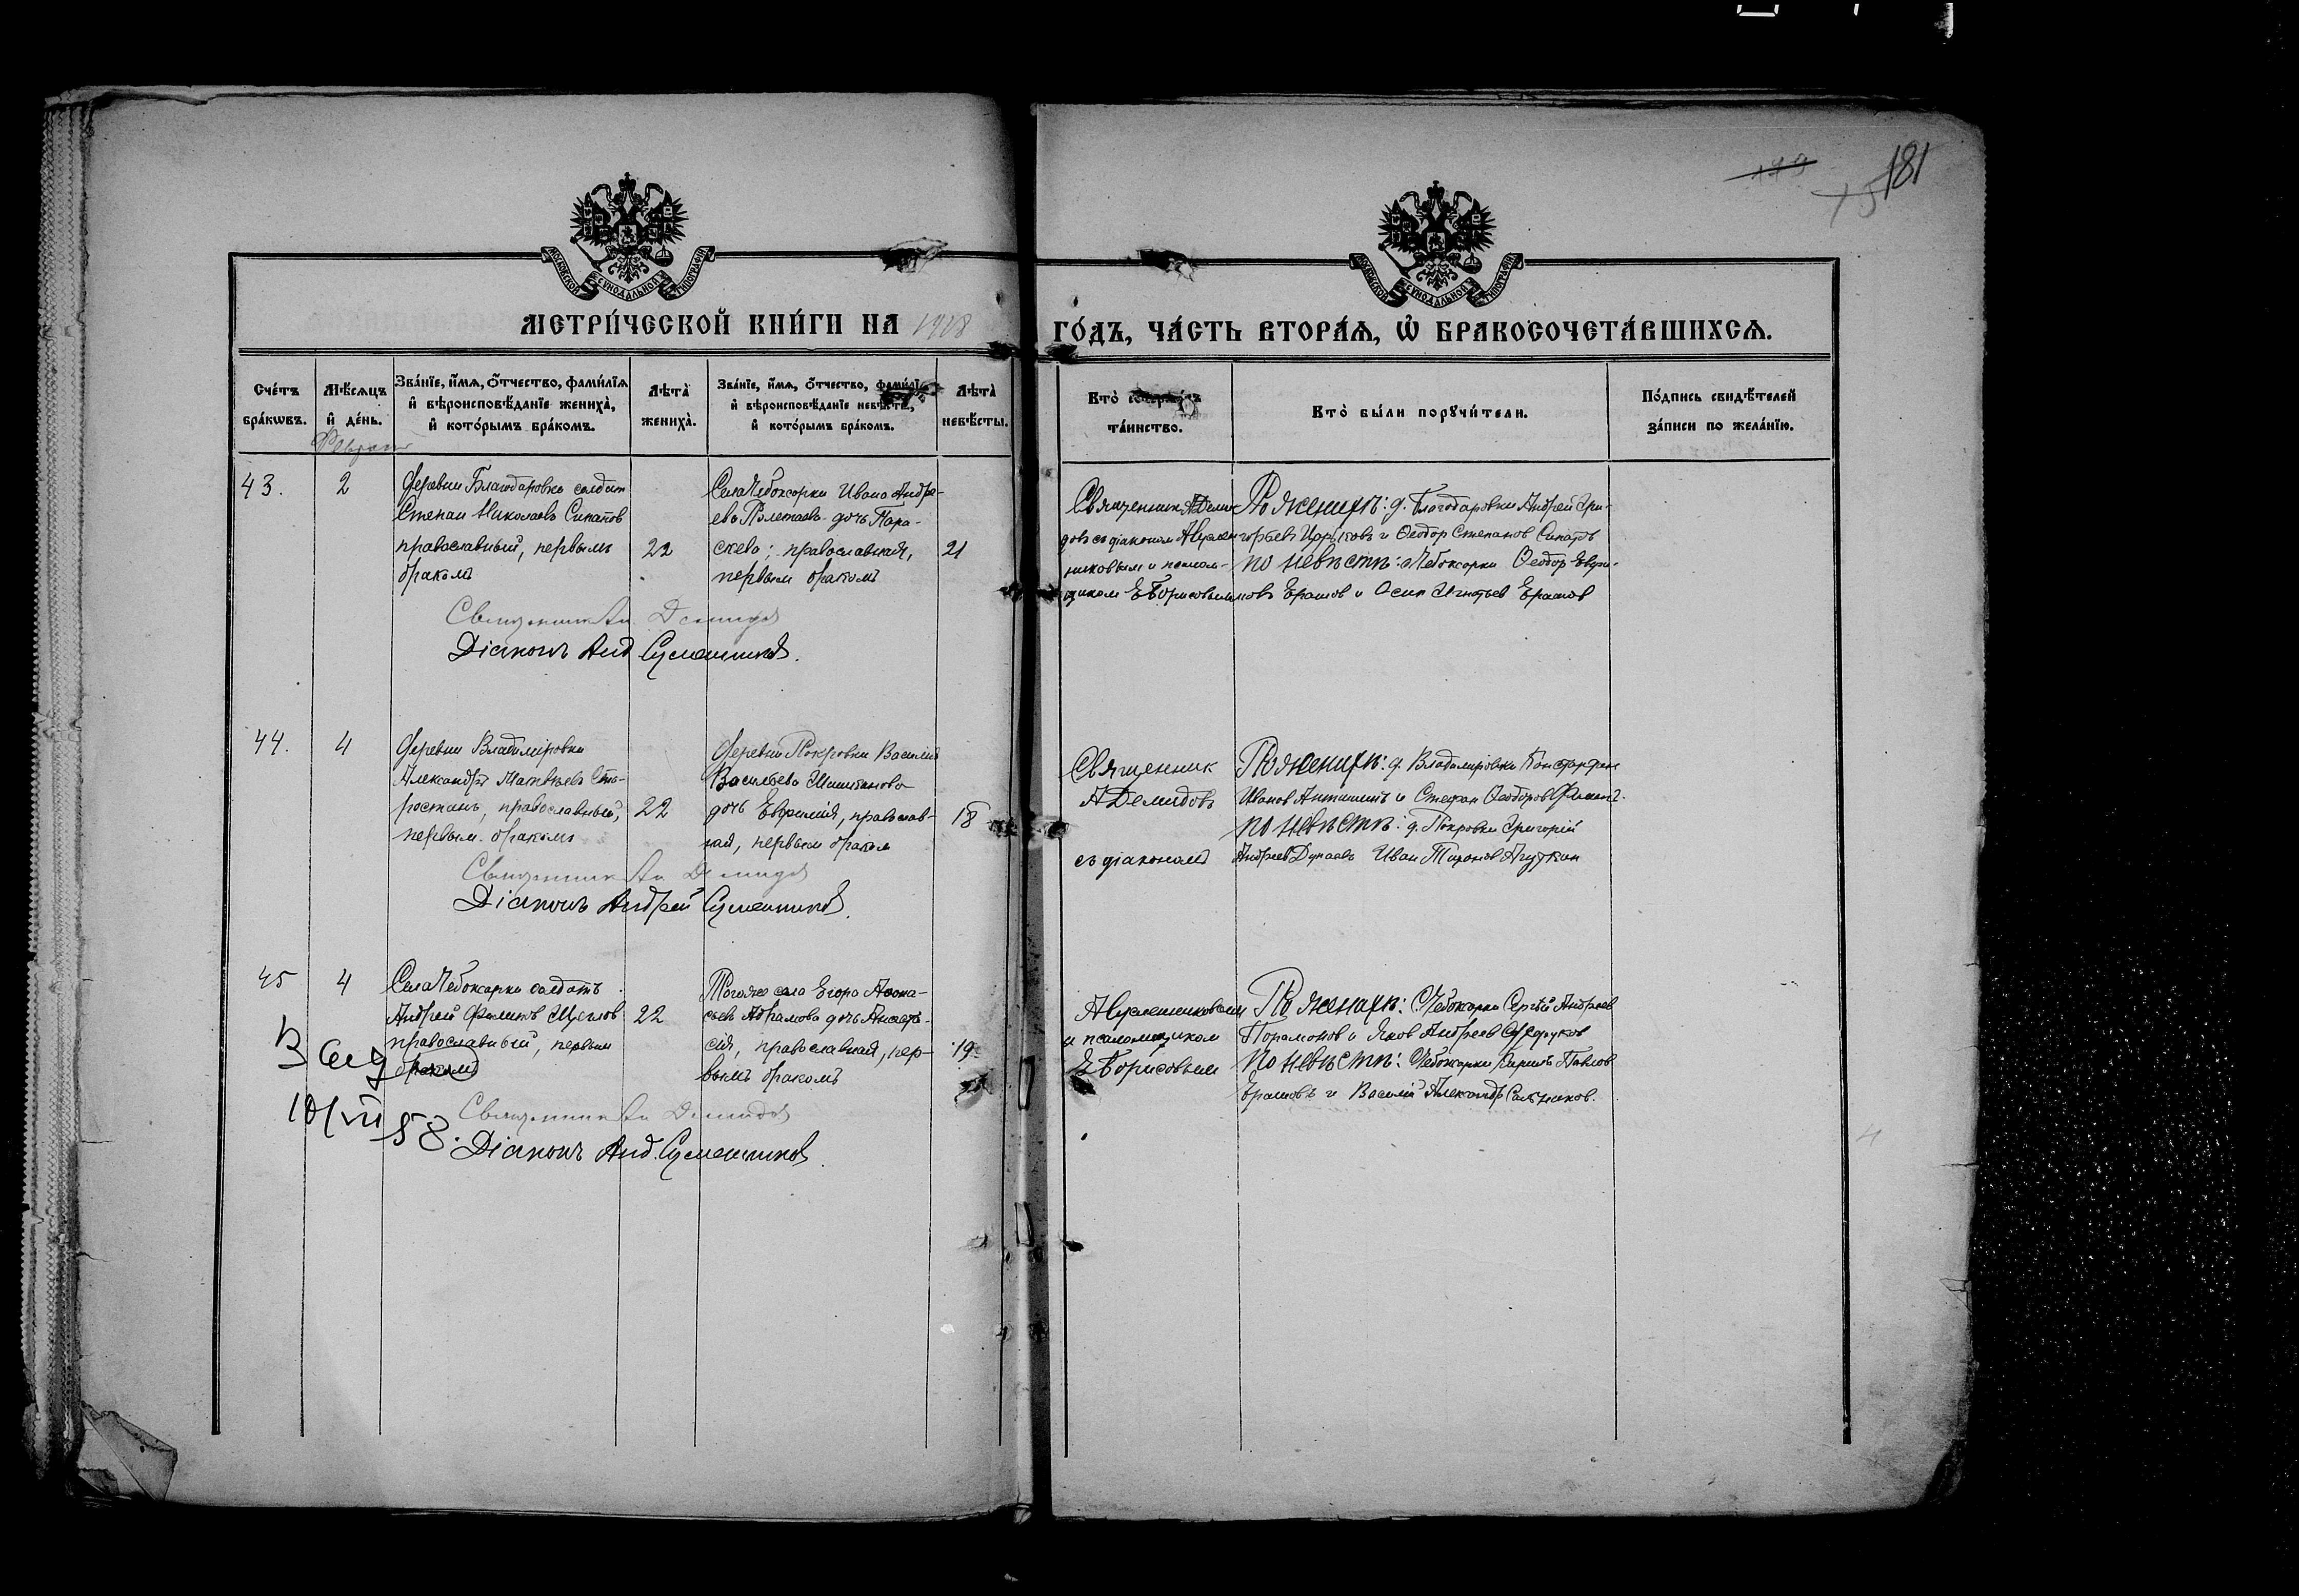 181
МОСКОВСКОЙ СѴНОДАЛЬНОЙ ТИПОГРАФІИ
МОСКОВСКОЙ СѴНОДАЛЬНОЙ ТИПОГРАФІИ
МЕТРИ́ЧЕСКОЙ КНИ́ГИ НА 1918
ГО́ДЪ, ЧА́СТЬ ВТОРА́Ѧ, Ѽ БРАКОСОЧЕТА́ВШИХСѦ.
Сче́тъ бра́кѡвъ.
Мѣ́сѧцъ и҆ де́нь.
Зва́нїе, и҆́мѧ, ѻ҆́тчество, фами́лїѧ и҆ вѣроисповѣ́данїе жениха̀, и҆ кото́рымъ бра́комъ.
Лѣта̀ жениха̀.
Зва́нїе, и҆́мѧ, ѻ҆́тчество, фами́лїѧ и҆ вѣроисповѣ́данїе невѣ́сты, и҆ кото́рымъ бра́комъ.
Лѣта̀ невѣ́сты.
Кто̀
та́инство.
Кто̀ бы́ли порꙋчи́тели.
По́дпись свидѣ́телей за́писи по жела́нїю.
43.
2
Деревни Благодаровки солдат
Степан Николаевъ Сипатов
православный, первымъ
бракомъ
22
Села Чебоксарки Ивана Андре-
ева Полетаева дочь Пара-
скева; православная,
первым бракомъ
21
Священник А Деми-
довъ съ діаконом А Сумен-
никовым и псалом-
щиком Е Борисовым
По женихѣ: д. Благодаровки Андрей Гри-
горьевъ и Ѳеодор Степанов Сипатов
по невѣстѣ: Чебоксарки Ѳеодор
Ерашов и Осип Игнатьев Ерашов
Священник Ан. Демидов
Діаконъ Анд Суменников.
44.
4
Деревни Владиміровки
Александръ Матвѣевъ Ста-
ростинъ, православный,
первым бракомъ
22
Деревни Покровки Василія
Васильева
дочь Евфимія, православ-
ная, первым браком
18
Священник
А Демидовъ
съ діакономъ
По женихѣ: д. Владиміровки Константин
Иванов Антишинъ и Стефан Ѳеодоров
по невѣстѣ: д. Покровки Григорій
Андреев Дунаевъ Иван Тихонов Агуткин
Священник Ан Демидов
Діаконъ Андрей Суменников.
45
4
Села Чебоксарки солдатъ
Андрей Филипов Щеглов
православный, первым
браком
22
Того же села Егора Аѳона-
сьева Абрамова дочь Анаста-
сія, православная, пер-
вымъ бракомъ
19.
А Суменниковым
и псаломщиком
Е Борисовым
По женихѣ: С. Чебоксарки Сергѣй Андреев
Порамонов и Яков Андреев
по невѣстѣ: Чебоксарки Кирилъ Павлов
Ерашовъ и Василій Александр
Священник Ан Демидов
10/VII 58.
Діаконъ Анд. Суменников.